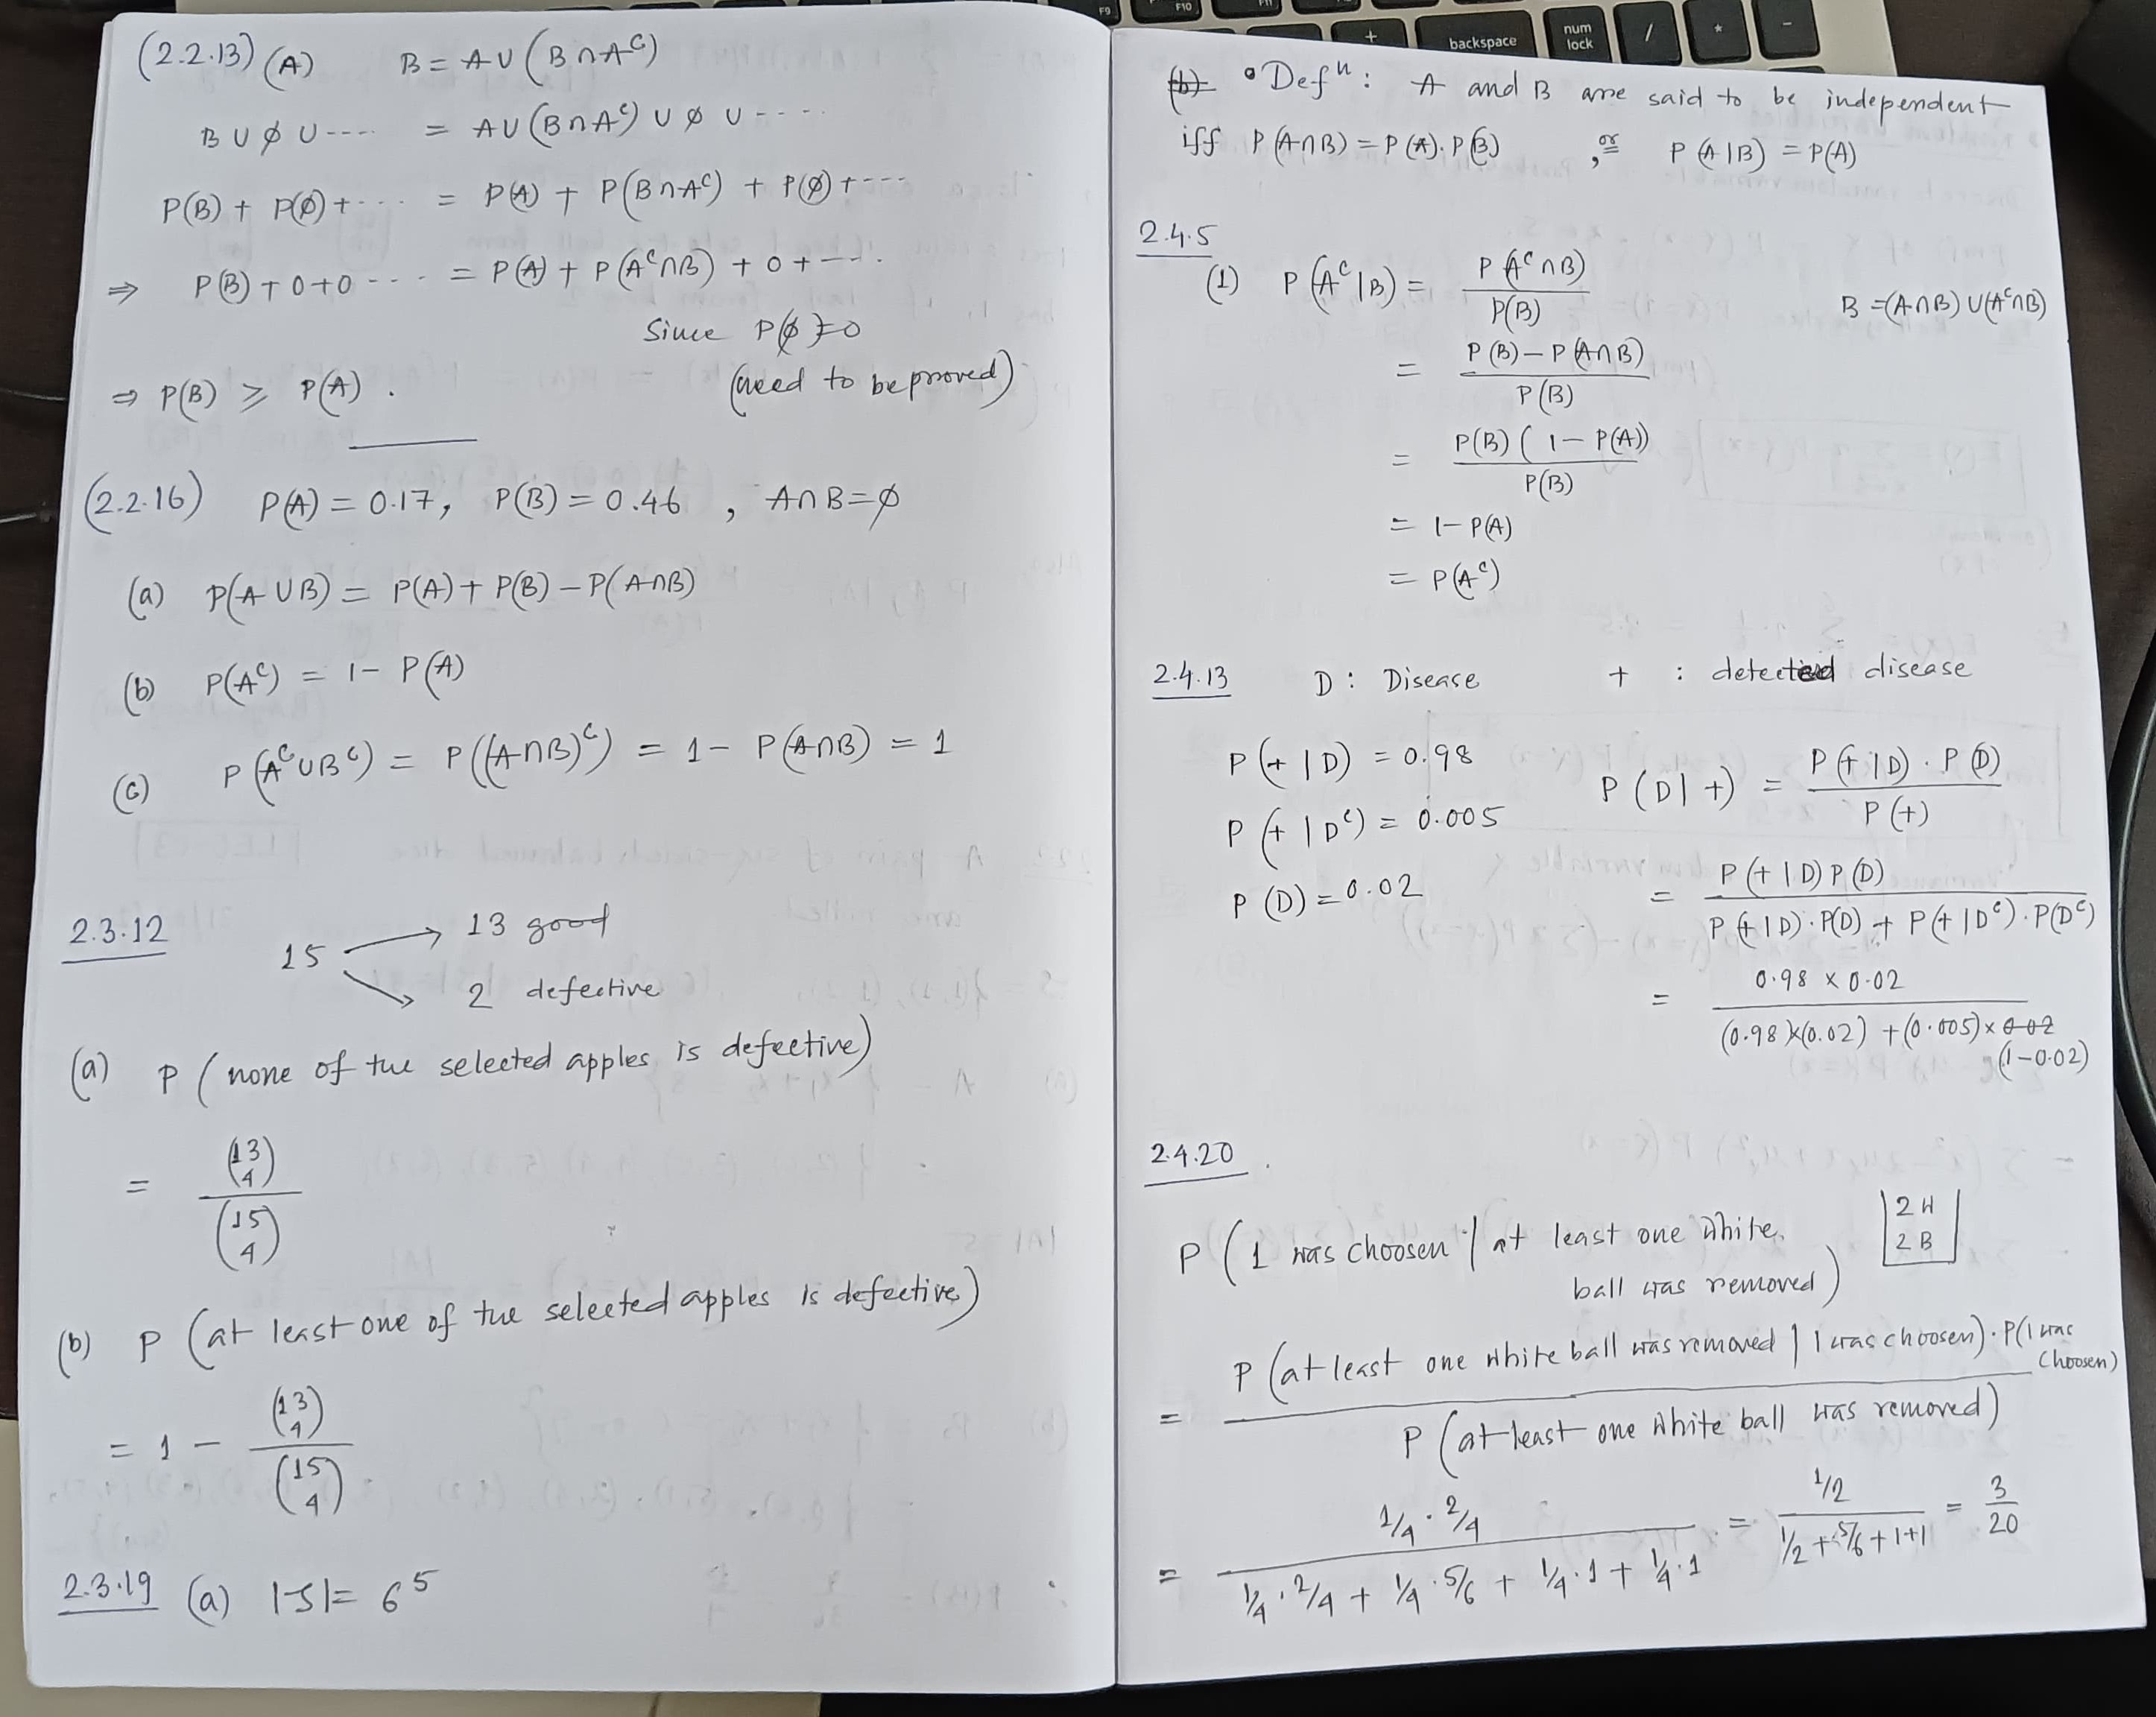 F9 F10 F11
+ backspace num lock / * -
(2.2.13) (A) B = A ∪ (B ∩ Aᶜ)
B ∪ ∅ ∪ ---- = A ∪ (B ∩ Aᶜ) ∪ ∅ ∪ ----
P(B) + P(∅) + ---- = P(A) + P(B ∩ Aᶜ) + P(∅) + ---
⇒ P(B) + 0 + 0 ---- = P(A) + P(Aᶜ ∩ B) + 0 + ---.
Since P(∅) = 0
⇒ P(B) ⩾ P(A) . (need to be proved)
(2.2.16) P(A) = 0.17, P(B) = 0.46 , A ∩ B = ∅
(a) P(A ∪ B) = P(A) + P(B) − P(A ∩ B)
(b) P(Aᶜ) = 1 − P(A)
(c) P(Aᶜ ∪ Bᶜ) = P((A ∩ B)ᶜ) = 1 − P(A ∩ B) = 1
2.3.12 15 → 13 good
→ 2 defective
(a) P (none of the selected apples is defective)
= (13 4) / (15 4)
(b) P (at least one of the selected apples is defective)
= 1 − (13 4) / (15 4)
2.3.19 (a) |S| = 6⁵
(b) • Defⁿ : A and B are said to be independent
iff P(A ∩ B) = P(A). P(B) , or P(A | B) = P(A)
2.4.5
(1) P(Aᶜ | B) = P(Aᶜ ∩ B) / P(B) B = (A ∩ B) ∪ (Aᶜ ∩ B)
= P(B) − P(A ∩ B) / P(B)
= P(B) (1 − P(A)) / P(B)
= 1 − P(A)
= P(Aᶜ)
2.4.13 D : Disease + : detected disease
P(+ | D) = 0.98
P(+ | Dᶜ) = 0.005
P(D) = 0.02
P(D | +) = P(+ | D) . P(D) / P(+)
= P(+ | D) P(D) / P(+ | D) . P(D) + P(+ | Dᶜ) . P(Dᶜ)
= 0.98 × 0.02 / (0.98)×(0.02) + (0.005) × 0.02
(1 − 0.02)
2.4.20 .
P (1 was choosen | at least one white
ball was removed)
2 W
2 B
= P (at least one white ball was removed | 1 was choosen) . P(1 was
choosen)
/ P (at least one white ball was removed)
= 1/4 . 2/4 / 1/4 . 2/4 + 1/4 . 5/6 + 1/4 . 1 + 1/4 . 1 = 1/2 / 1/2 + 5/6 + 1 + 1 = 3/20